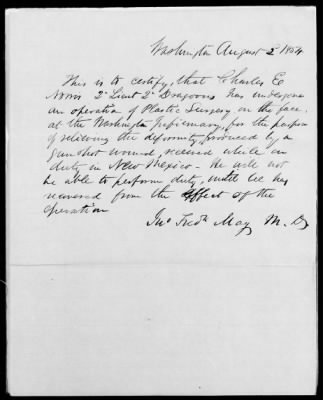 Washington August 2d 1854
This is to certify, that Charles E
Norris 2d Lieut 2d Dragoons has undergone
an operation of Plastic Surgery on the face,
at the Washington Infirmary, for the purpose
of relieving the deformity produced by a
gunshot wound, received while on
duty in New Mexico. He will not
be able to perform duty, until he has
recovered from the effect of the
operation
Jno Fredk May M. D.